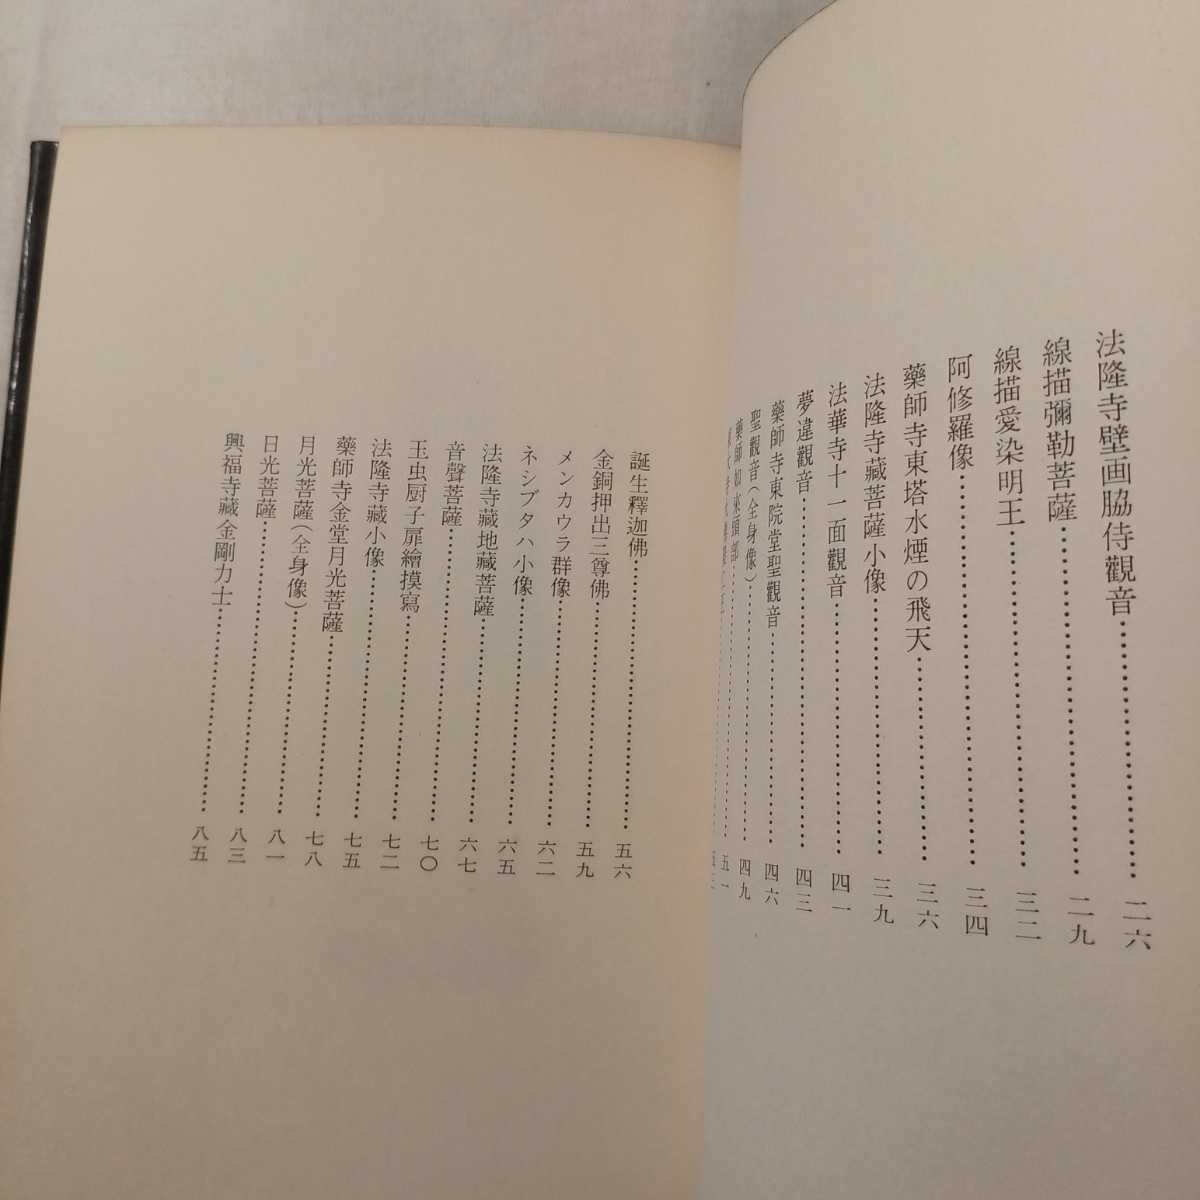 法隆寺壁画脇侍觀音……………………二六
線描彌勒菩薩……………………二九
線描愛染明王……………………三二
阿修羅像……………………三四
藥師寺東塔水煙の飛天……………………三六
法隆寺藏菩薩小像……………………三九
法華寺十一面觀音……………………四一
夢違觀音……………………四三
藥師寺東院堂聖觀音……………………四六
聖觀音(全身像)……………………四九
藥師如來頭部……………………五一
誕生釋迦佛……………………五六
金銅押出三尊佛……………………五九
メンカウラ群像……………………六二
ネシブタハ小像……………………六五
法隆寺藏地藏菩薩……………………六七
音聲菩薩……………………七〇
玉虫厨子扉繪摸寫……………………七二
法隆寺藏小像……………………七五
藥師寺金堂月光菩薩……………………七八
月光菩薩(全身像)……………………八一
日光菩薩……………………八三
興福寺藏金剛力士……………………八五